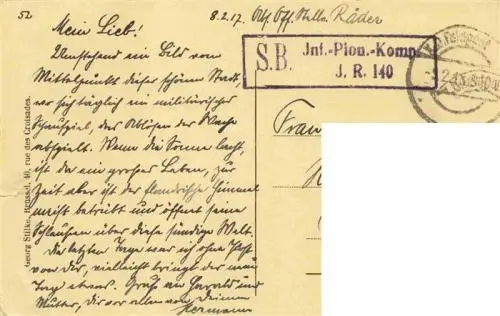 52
8.2.17. Abs. Off. Stellv. Räder
S.B. Inf.-Pion.-Komp.
J. R. 140
Mein Lieb!
Umstehend ein Bild vom
Mittelpunkt dieser schönen Stadt,
wo sich täglich ein militärisches
Schauspiel, das Ablösen der Wache
abspielt. Wenn die Sonne lacht,
ist da ein großes Leben, zur
Zeit aber ist der flandrische Himmel
meist betrübt und öffnet seine
Schleusen über diese sündige Welt.
Die letzten Tage war ich ohne Post
von dir, vielleicht bringt der neue
Tag etwas. Gruß an Harald und
Mutter, dir vor allem von Deinem
Hermann
Frau
Georg Stilke, Brüssel, 40, rue des Croisades.